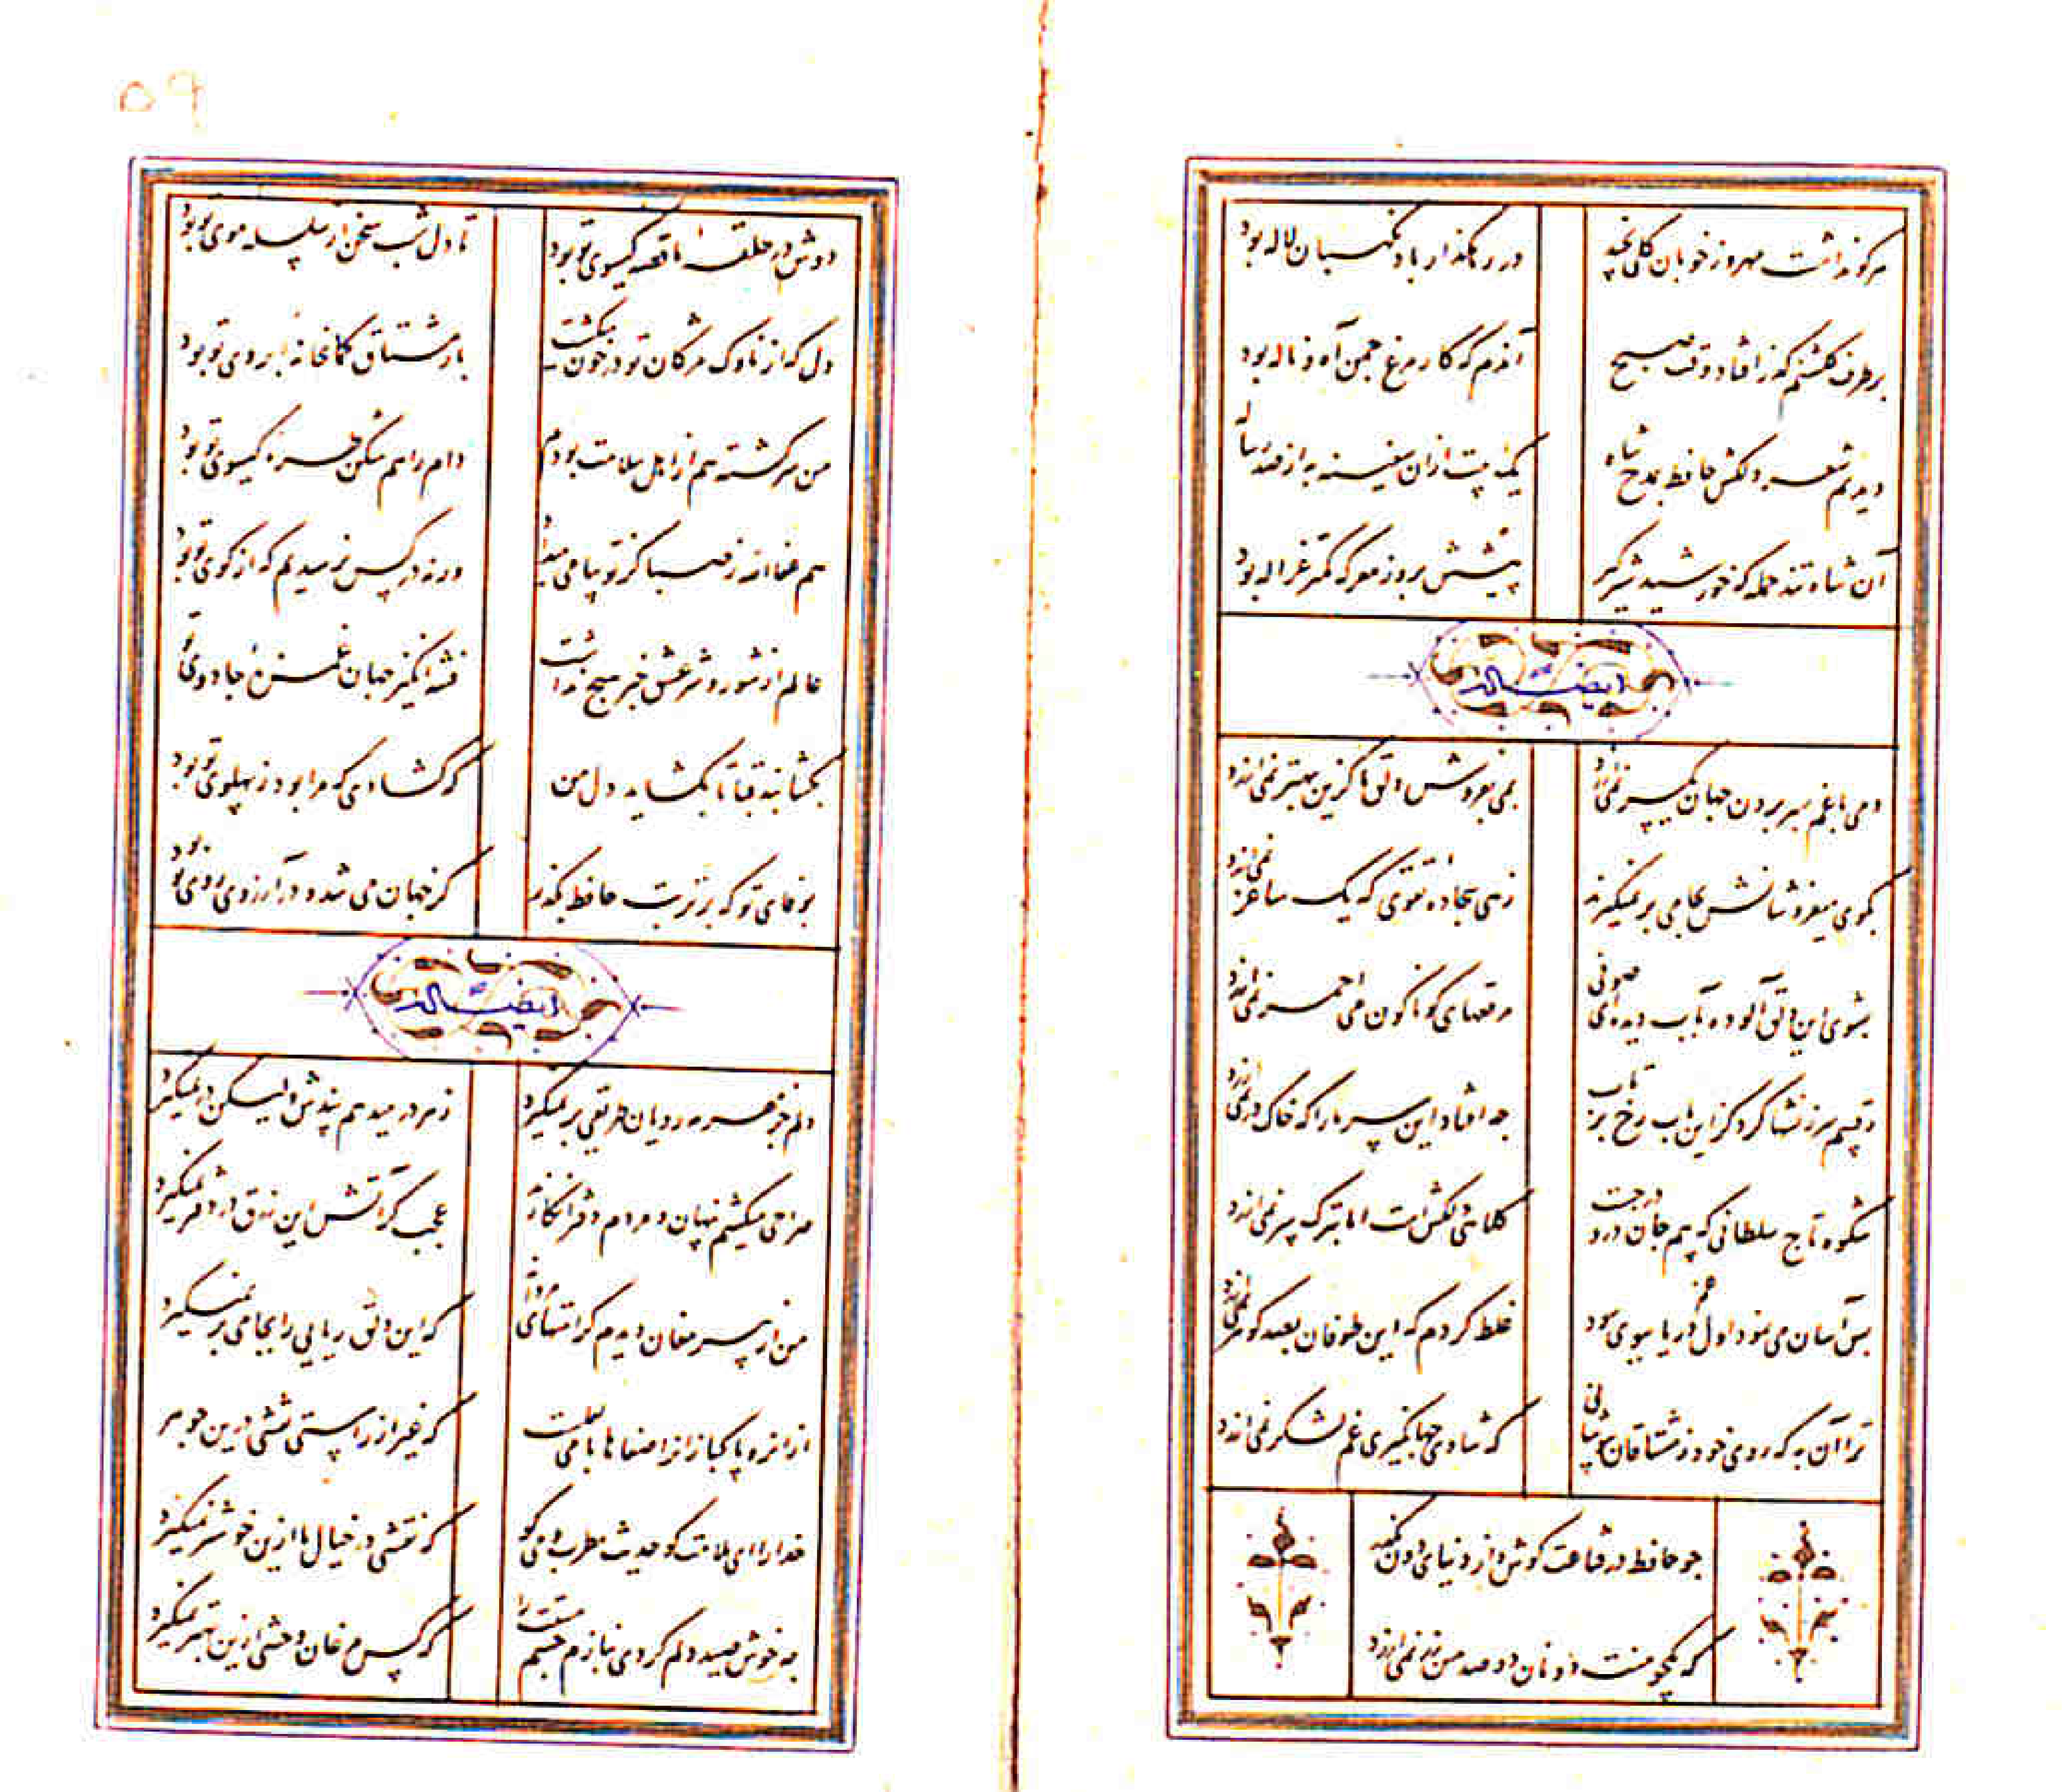 هرکو نداشت مهر و ز خوبان گلی نچید
در رهگذار باد نگهبان لاله بود
بر طرف گلشنم گذر افتاد وقت صبح
آندم که کار مرغ چمن آه و ناله بود
دیدیم شعر دلکش حافظ بمدح شاه
یک بیت ازان سفینه به از صد رساله
آن شاه تند حمله که خورشید شیرگیر
پیشش بروز معرکه کمتر غزاله بود
ایضاً له
دمی با غم بسر بردن جهان یکسر نمی‌ارزد
بمی بفروش دلق ما کزین بهتر نمی‌ارزد
بکوی میفروشانش بجامی بر نمیگیرند
زهی سجاده تقوی که یک ساغر نمی‌ارزد
بشوی این دلق آلوده بآب دیده‌ای صوفی
مرقعهای گوناگون می احمر نمی‌ارزد
رقیبم سرزنشها کرد کز این باب رخ برتاب
چه افتاد این سر ما را که خاک در نمی‌ارزد
شکوه تاج سلطانی که بیم جان درو درجست
کلاهی دلکش است اما بترک سر نمی‌ارزد
بس آسان می‌نمود اول غم دریا ببوی سود
غلط کردم که این طوفان بصد گوهر نمی‌ارزد
ترا آن به که روی خود ز مشتاقان بپوشانی
که شادی جهانگیری غم لشکر نمی‌ارزد
چو حافظ در قناعت کوش و از دنیای دون بگذر
که یکجو منت دونان دو صد من زر نمی‌ارزد
۵۹
دوش در حلقه ما قصه گیسوی تو بود
تا دل شب سخن از سلسله موی تو بود
دل که از ناوک مژگان تو در خون میگشت
باز مشتاق کمانخانه ابروی تو بود
من سرگشته هم از اهل سلامت بودم
دام راهم شکن طره گیسوی تو بود
هم عفا الله ز صبا کز تو پیامی میداد
ورنه در کس نرسیدیم که از کوی تو بود
عالم از شور و شر عشق خبر هیچ نداشت
فتنه انگیز جهان غمزه جادوی تو
بگشا بند قبا تا بگشاید دل من
که گشادی که مرا بود ز پهلوی تو بود
بوفای تو که بر تربت حافظ بگذر
کز جهان می شد و در آرزوی روی تو بود
ایضاً له
دلم جز مهر مه رویان طریقی بر نمیگیرد
ز هر در میدهم پندش ولیکن در نمیگیرد
صراحی میکشم پنهان و مردم دفتر انگارند
عجب گر آتش این زرق در دفتر نمیگیرد
من از پیر مغان دیدم کرامتهای مردانه
که این دلق ریایی را بجامی بر نمیگیرد
از انرو پاکبازانرا صفاها با می لعلست
که غیر از راستی نقشی درین جوهر
خدا را ای ملامت گو حدیث مطرب و می گو
که نقشی در خیال ما ازین خوشتر نمیگیرد
چه خوش صید دلم کردی بنازم چشم مستت را
که کس مرغان وحشی ازین بهتر نمیگیرد